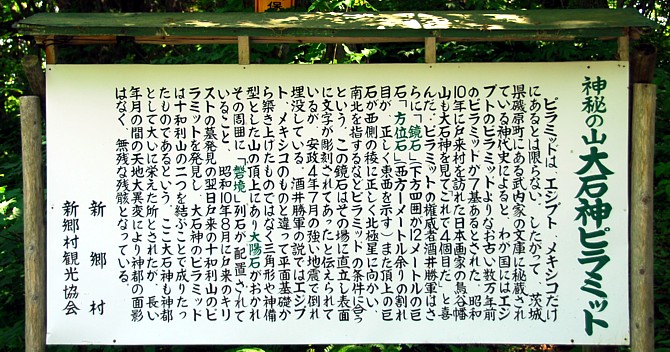 神秘の山大石神ピラミッド
ピラミッドは、エジプト、メキシコだけ
にあるとは限らない。したがって、茨城
県磯原町にある武内家の文庫に秘蔵され
ている神代史によると、わが国にはエジ
プトのピラミッドよりなお古い数万年前
のピラミッドが7基あるとされた。昭和
10年に戸来村を訪れた日本画家の鳥谷幡
山も大石神を見て「これで4個目だ」と喜
んだ。ピラミッドの権威者酒井勝軍はさ
らに「鏡石」(下方四囲が9メートルの巨
石)「方位石」(西方一メートル余りの割れ
目が、正しく東西を示す)また頂上の巨
石が西側の稜に正しく北極星に向かい、
南北を指すなどピラミッドの条件に合う
という。この鏡石はその場に直立し表面
に文字が彫刻されてあったと伝えられて
いるが、安政4年7月の強い地震で倒れ
埋没している。酒井勝軍の説ではエジプ
ト、メキシコのものと違って平面基礎か
ら築き上げたものではなく三角形や神備
型とした山の頂上にあり太陽石がおかれ
その周囲に「磐境」(列石)が配置されて
いること、昭和10年8月が戸来のキリ
ストの墓発見の翌日戸来の十和利山のピ
ラミッドを発見し、大石神のピラミッド
は十和利山の二つを結ぶことで成りたっ
たものであるという。ここ大石神も神都
として大いに栄えた所とされたが、長い
年月の間の天地大異変により神都の面影
はなく、無残な残骸となっている。
新郷村
新郷村観光協会